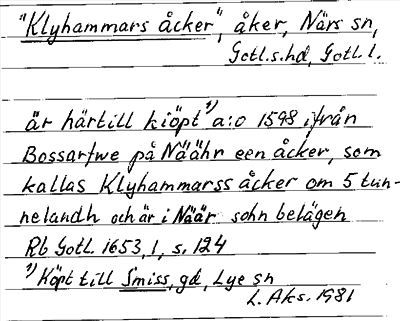 "Klyhammars åcker", åker, Närs sn,
Gotl.s.hd, Gotl. l.
är härtill kiöpt ¹) a:o 1598 ifrån
Bossarfwe på Näähr een åcker, som
kallas Klyhammarss åcker om 5 tun-
nelandh och är i Näär sohn belägen
Rb Gotl. 1653, 1, s. 124
¹) Köpt till Smiss, gd, Lye sn
L. Aks. 1981